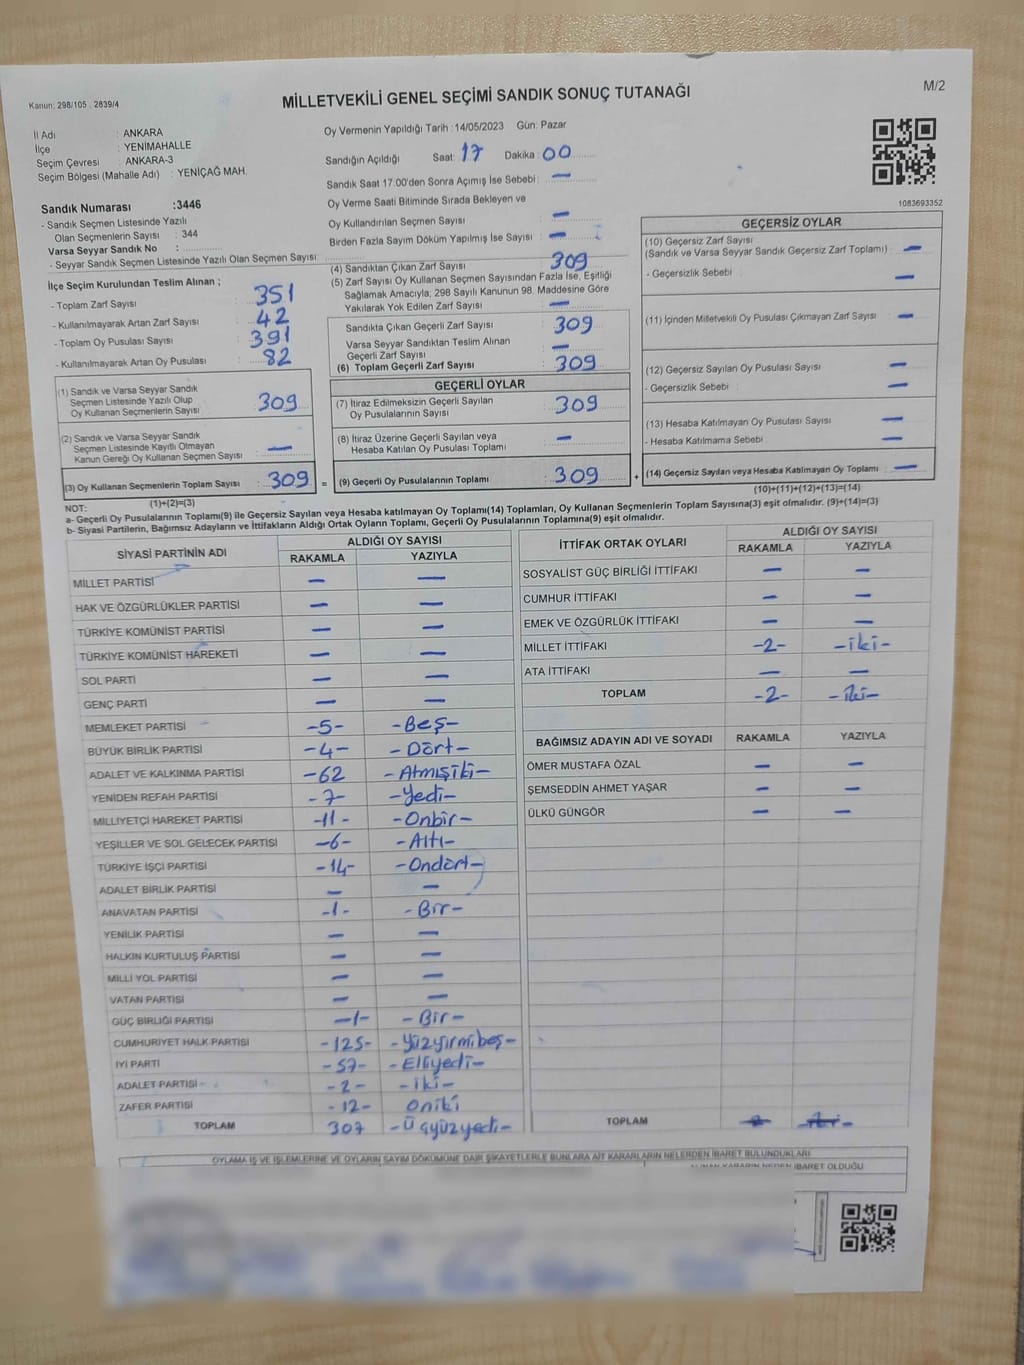 Kanun: 298/105 , 2839/4
MİLLETVEKİLİ GENEL SEÇİMİ SANDIK SONUÇ TUTANAĞI
M/2
İl Adı : ANKARA
İlçe : YENİMAHALLE
Seçim Çevresi : ANKARA-3
Seçim Bölgesi (Mahalle Adı) : YENİÇAĞ MAH.
Oy Vermenin Yapıldığı Tarih :14/05/2023 Gün: Pazar
Sandığın Açıldığı Saat: 17 Dakika : 00
Sandık Saat 17.00'den Sonra Açımış İse Sebebi : —
Oy Verme Saati Bitiminde Sırada Bekleyen ve
Oy Kullandırılan Seçmen Sayısı : —
Birden Fazla Sayım Döküm Yapılmış İse Sayısı : —
1083693352
Sandık Numarası :3446
- Sandık Seçmen Listesinde Yazılı
Olan Seçmenlerin Sayısı : 344
Varsa Seyyar Sandık No :
- Seyyar Sandık Seçmen Listesinde Yazılı Olan Seçmen Sayısı:
İlçe Seçim Kurulundan Teslim Alınan ;
- Toplam Zarf Sayısı : 351
- Kullanılmayarak Artan Zarf Sayısı : 42
- Toplam Oy Pusulası Sayısı : 391
- Kullanılmayarak Artan Oy Pusulası : 82
(1) Sandık ve Varsa Seyyar Sandık
Seçmen Listesinde Yazılı Olup
Oy Kullanan Seçmenlerin Sayısı : 309
(2) Sandık ve Varsa Seyyar Sandık
Seçmen Listesinde Kayıtlı Olmayan
Kanun Gereği Oy Kullanan Seçmen Sayısı : —
(3) Oy Kullanan Seçmenlerin Toplam Sayısı : 309 =
(1)+(2)=(3)
(4) Sandıktan Çıkan Zarf Sayısı : 309
(5) Zarf Sayısı Oy Kullanan Seçmen Sayısından Fazla İse, Eşitliği
Sağlamak Amacıyla; 298 Sayılı Kanunun 98. Maddesine Göre
Yakılarak Yok Edilen Zarf Sayısı : —
Sandıkta Çıkan Geçerli Zarf Sayısı : 309
Varsa Seyyar Sandıktan Teslim Alınan
Geçerli Zarf Sayısı : —
(6) Toplam Geçerli Zarf Sayısı : 309
GEÇERLİ OYLAR
(7) İtiraz Edilmeksizin Geçerli Sayılan
Oy Pusulalarının Sayısı : 309
(8) İtiraz Üzerine Geçerli Sayılan veya
Hesaba Katılan Oy Pusulası Toplamı : —
(9) Geçerli Oy Pusulalarının Toplamı : 309 +
GEÇERSİZ OYLAR
(10) Geçersiz Zarf Sayısı
(Sandık ve Varsa Seyyar Sandık Geçersiz Zarf Toplamı) : —
- Geçersizlik Sebebi : —
(11) İçinden Milletvekili Oy Pusulası Çıkmayan Zarf Sayısı : —
(12) Geçersiz Sayılan Oy Pusulası Sayısı : —
- Geçersizlik Sebebi : —
(13) Hesaba Katılmayan Oy Pusulası Sayısı : —
- Hesaba Katılmama Sebebi : —
(14) Geçersiz Sayılan veya Hesaba Katılmayan Oy Toplamı : —
(10)+(11)+(12)+(13)=(14)
NOT:
a- Geçerli Oy Pusulalarının Toplamı(9) ile Geçersiz Sayılan veya Hesaba katılmayan Oy Toplamı(14) Toplamları, Oy Kullanan Seçmenlerin Toplam Sayısına(3) eşit olmalıdır. (9)+(14)=(3)
b- Siyasi Partilerin, Bağımsız Adayların ve İttifakların Aldığı Ortak Oyların Toplamı, Geçerli Oy Pusulalarının Toplamına(9) eşit olmalıdır.
SİYASİ PARTİNİN ADI ALDIĞI OY SAYISI
RAKAMLA YAZIYLA
MİLLET PARTİSİ — —
HAK VE ÖZGÜRLÜKLER PARTİSİ — —
TÜRKİYE KOMÜNİST PARTİSİ — —
TÜRKİYE KOMÜNİST HAREKETİ — —
SOL PARTİ — —
GENÇ PARTİ — —
MEMLEKET PARTİSİ -5- -Beş-
BÜYÜK BİRLİK PARTİSİ -4- -Dört-
ADALET VE KALKINMA PARTİSİ -62 -Atmışiki-
YENİDEN REFAH PARTİSİ -7- -Yedi-
MİLLİYETÇİ HAREKET PARTİSİ -11- -Onbir-
YEŞİLLER VE SOL GELECEK PARTİSİ -6- -Altı-
TÜRKİYE İŞÇİ PARTİSİ -14- -Ondört-
ADALET BİRLİK PARTİSİ — —
ANAVATAN PARTİSİ -1- -Bir-
YENİLİK PARTİSİ — —
HALKIN KURTULUŞ PARTİSİ — —
MİLLİ YOL PARTİSİ — —
VATAN PARTİSİ — —
GÜÇ BİRLİĞİ PARTİSİ -1- -Bir-
CUMHURİYET HALK PARTİSİ -125- -Yüzyirmibeş-
İYİ PARTİ -57- -Elliyedi-
ADALET PARTİSİ -2- -iki-
ZAFER PARTİSİ -12- Oniki
TOPLAM 307 -Üçyüzyedi-
İTTİFAK ORTAK OYLARI ALDIĞI OY SAYISI
RAKAMLA YAZIYLA
SOSYALİST GÜÇ BİRLİĞİ İTTİFAKI — —
CUMHUR İTTİFAKI — —
EMEK VE ÖZGÜRLÜK İTTİFAKI — —
MİLLET İTTİFAKI -2- -iki-
ATA İTTİFAKI — —
TOPLAM -2- -iki-
BAĞIMSIZ ADAYIN ADI VE SOYADI RAKAMLA YAZIYLA
ÖMER MUSTAFA ÖZAL — —
ŞEMSEDDİN AHMET YAŞAR — —
ÜLKÜ GÜNGÖR — —
TOPLAM -2- -iki-
OYLAMA İŞ VE İŞLEMLERİNE VE OYLARIN SAYIM DÖKÜMÜNE DAİR ŞİKAYETLERLE BUNLARA AİT KARARLARIN NELERDEN İBARET BULUNDUKLARI
ALINAN KARARIN NEDEN İBARET OLDUĞU